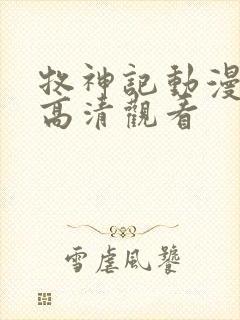 牧神記動漫
高清觀看
雪虐風饕